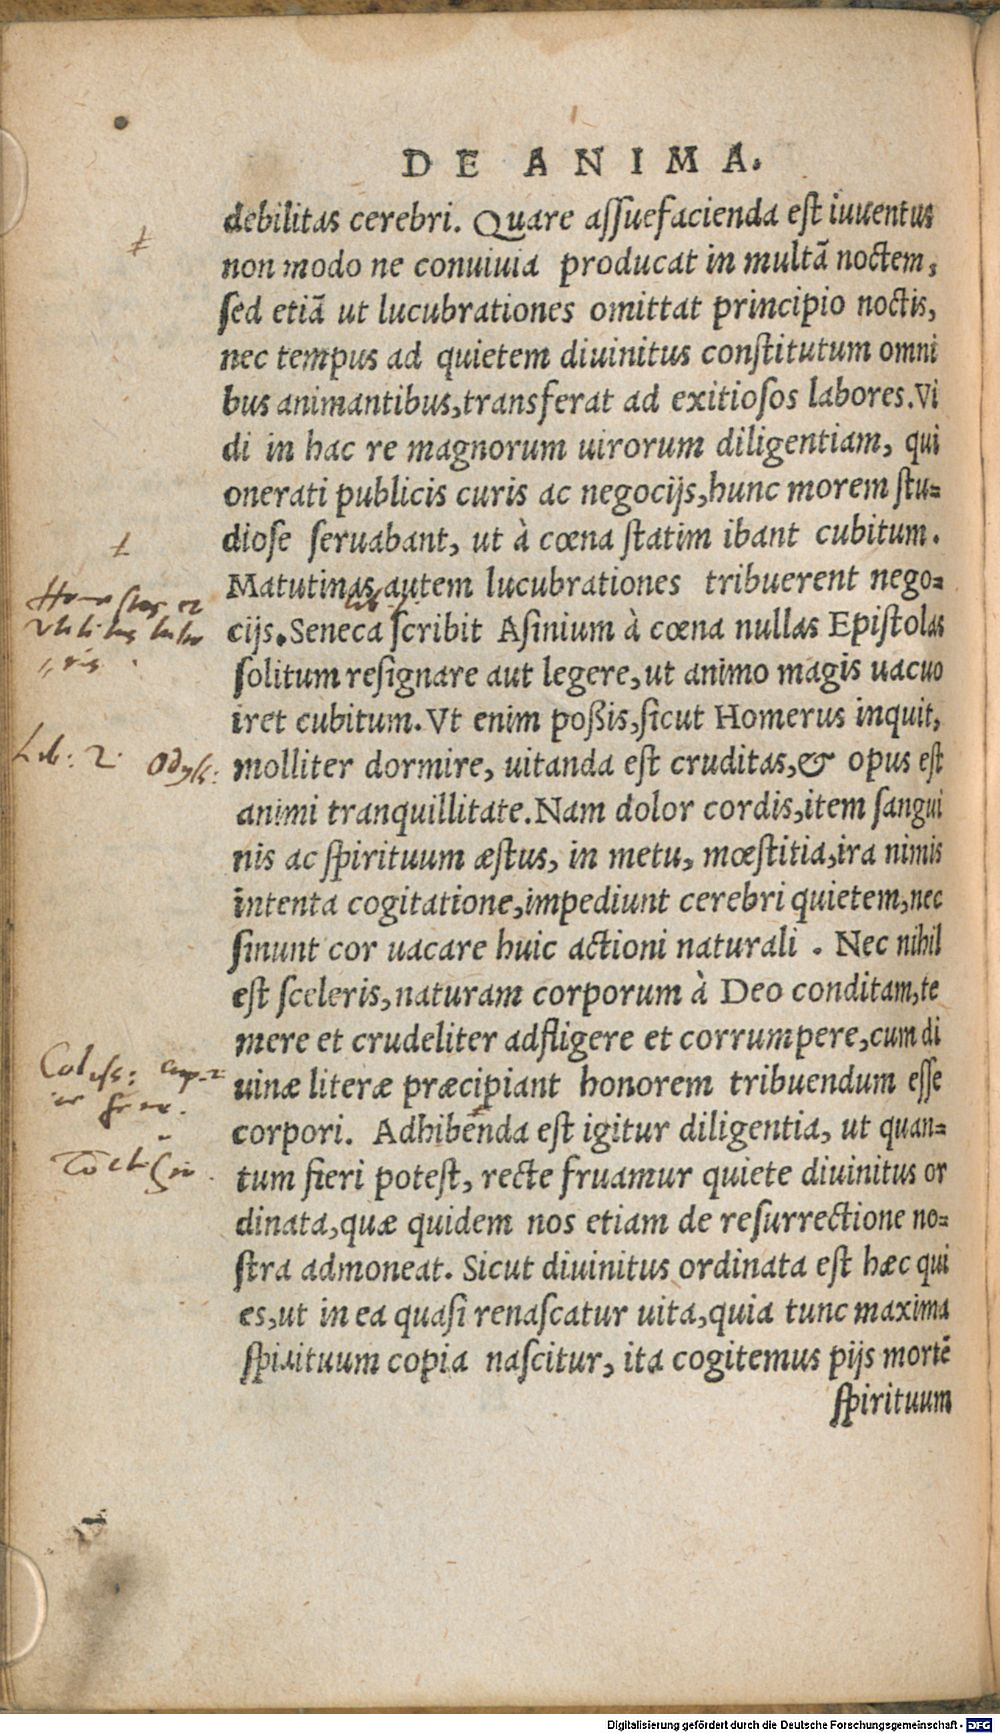 DE ANIMA.
debilitas cerebri. Quare assuefacienda est iuuentus
non modo ne conuiuia producat in multã noctem,
sed etiã ut lucubrationes omittat principio noctis,
nec tempus ad quietem diuinitus constitutum omni
bus animantibus,transferat ad exitiosos labores.Vi
di in hac re magnorum uirorum diligentiam, qui
onerati publicis curis ac negocijs,hunc morem stu-
diose seruabant, ut à cœna statim ibant cubitum.
Matutinas autem lucubrationes tribuerent nego-
cijs.Seneca scribit Asinium à cœna nullas Epistolas
solitum resignare aut legere,ut animo magis uacuo
iret cubitum.Vt enim poßis,sicut Homerus inquit,
Lib: 2. Odyss:
molliter dormire, uitanda est cruditas,& opus est
animi tranquillitate.Nam dolor cordis,item sangui
nis ac spirituum æstus, in metu, mœstitia,ira nimis
intenta cogitatione,impediunt cerebri quietem,nec
sinunt cor uacare huic actioni naturali . Nec nihil
est sceleris,naturam corporum à Deo conditam,te
mere et crudeliter adfligere et corrumpere,cum di
Coloss: cap. 2
uinæ literæ præcipiant honorem tribuendum esse
corpori. Adhibenda est igitur diligentia, ut quan-
tum fieri potest, recte fruamur quiete diuinitus or
dinata,quæ quidem nos etiam de resurrectione no-
stra admoneat. Sicut diuinitus ordinata est hæc qui
es,ut in ea quasi renascatur uita,quia tunc maxima
spirituum copia nascitur, ita cogitemus pijs mortẽ
spirituum
Digitalisierung gefördert durch die Deutsche Forschungsgemeinschaft - DFG